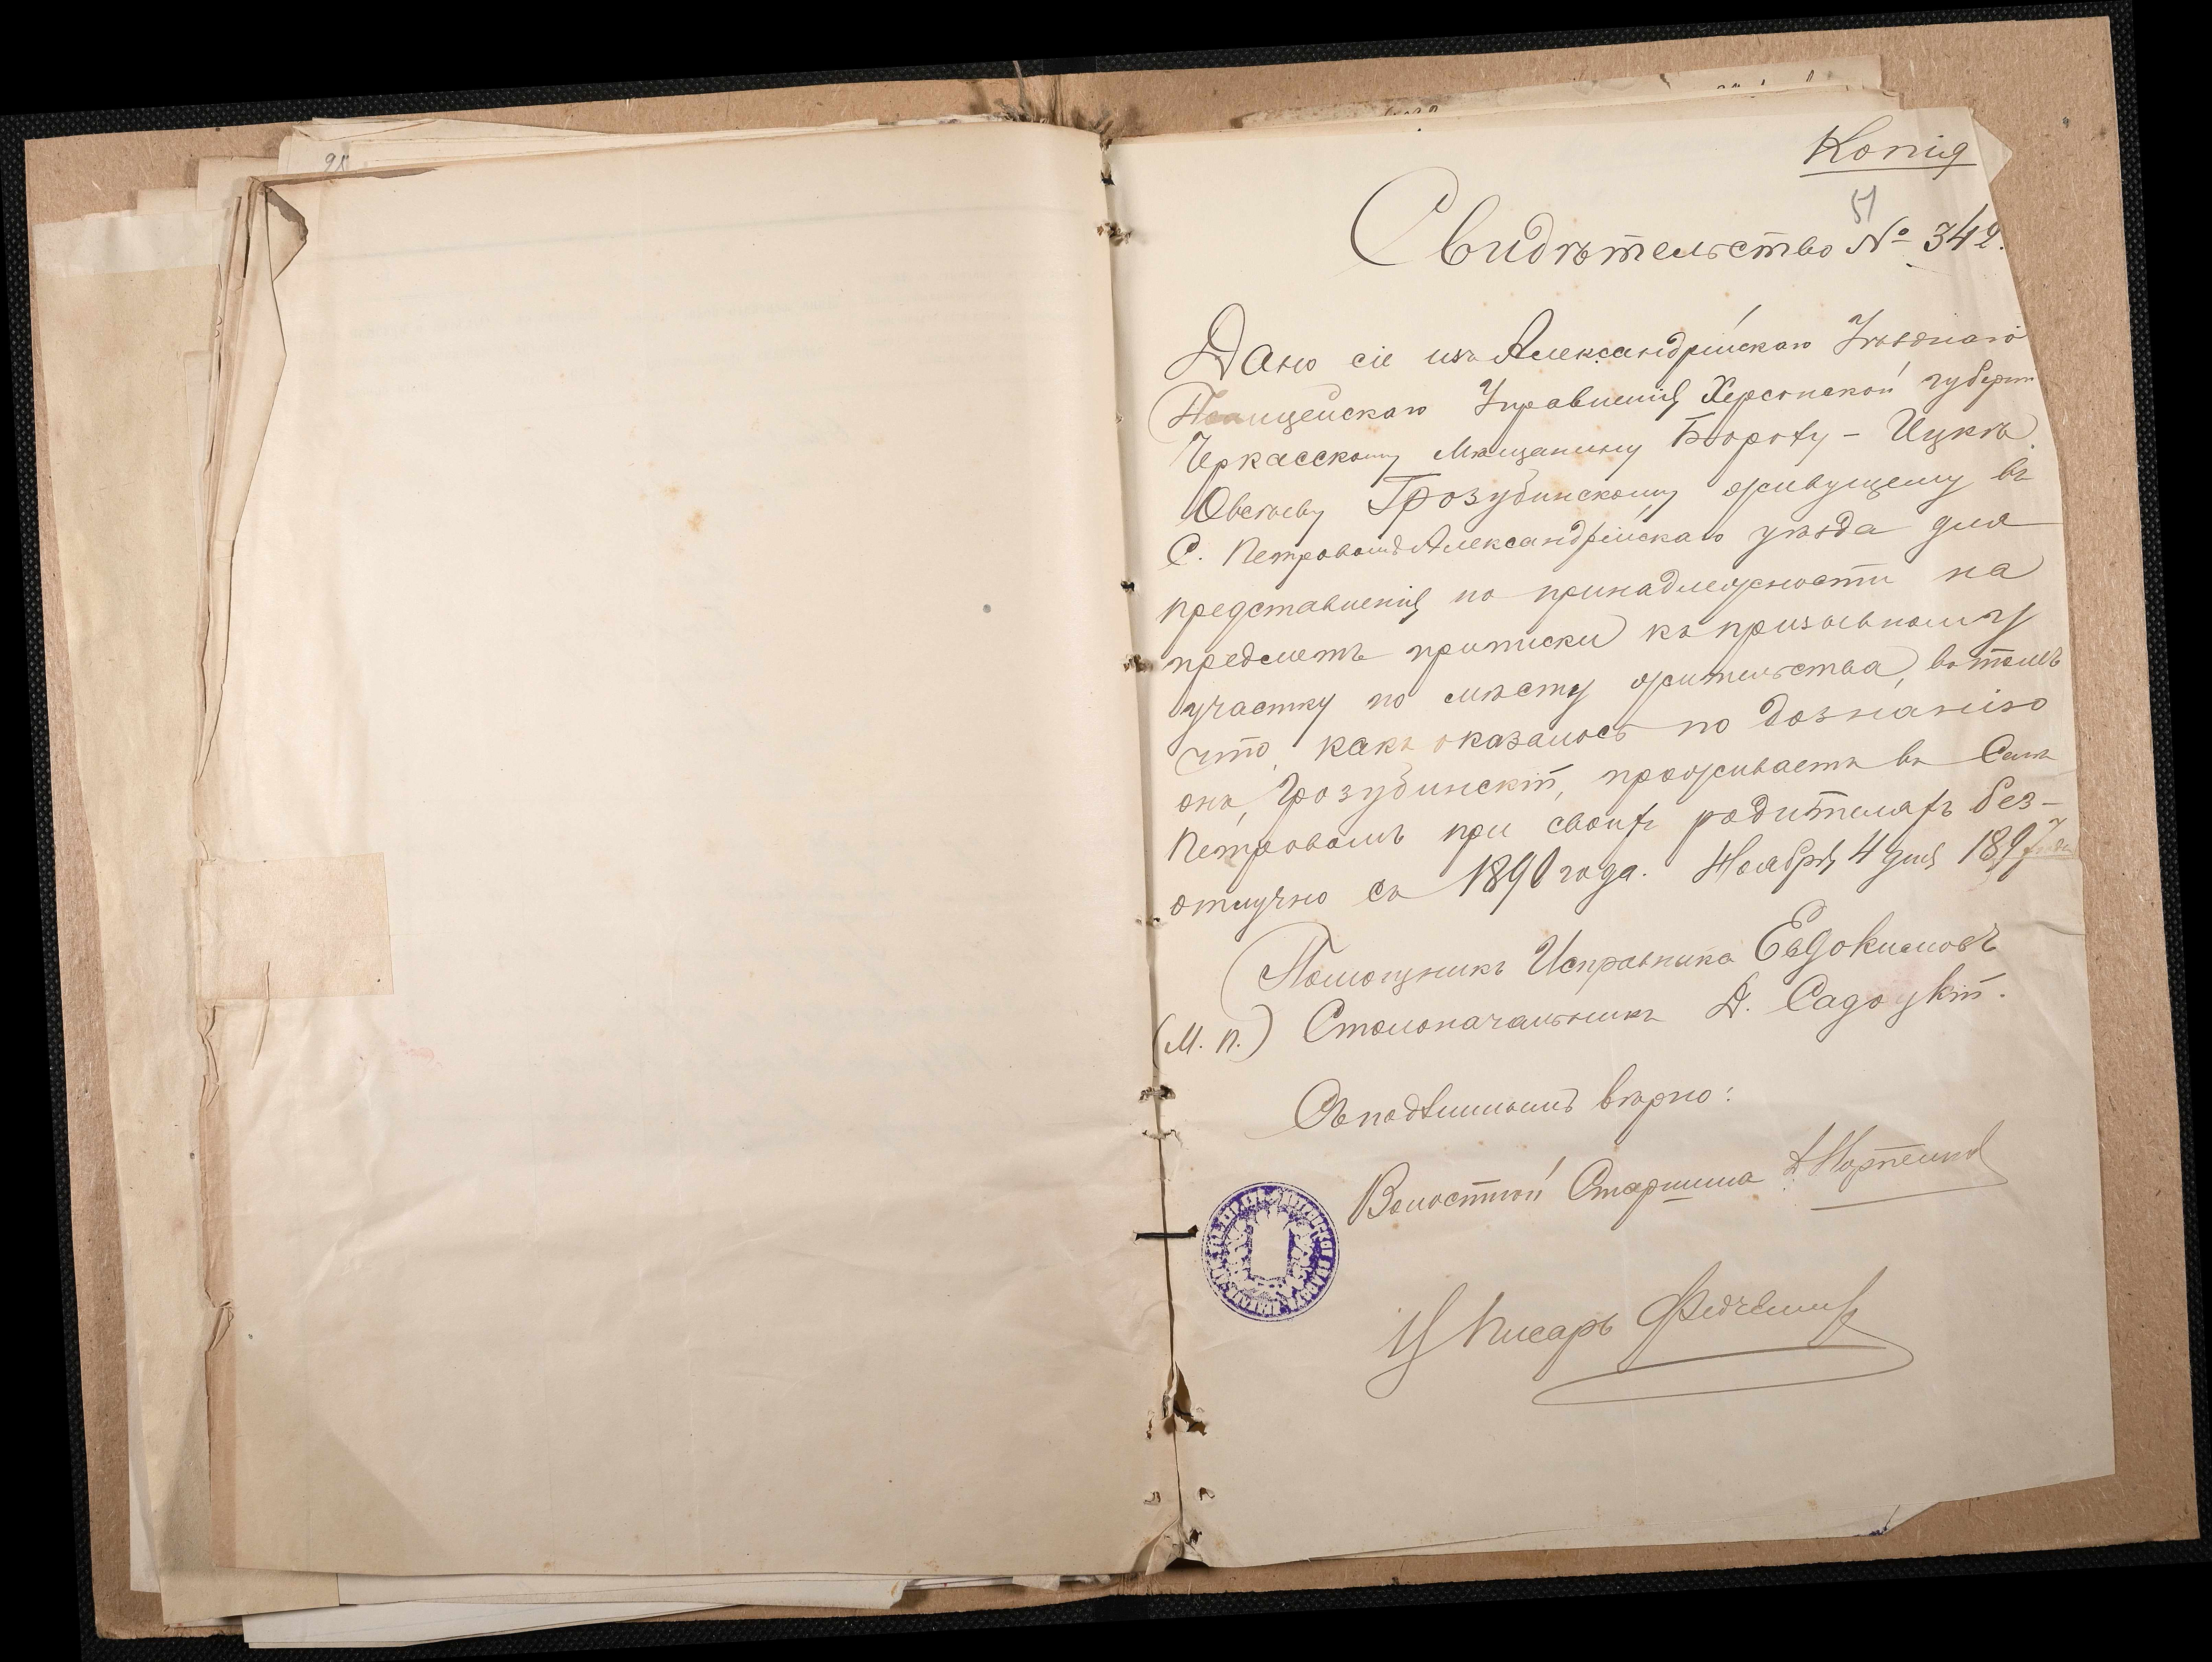 98
Копія
51
Свидѣтельство № 342.
Дано сіе изъ Александрійскаго Уѣзднаго
Полицейскаго Управленія Херсонской губерніи
Черкасскому Мѣщанину Бороху-Ицкѣ
Овсѣеву Грозубинскому живущему въ
С. Петровомъ Александрійскаго уѣзда для
представленія по принадлежности на
предметъ приписки къ призывному
участку по мѣсту жительства, въ томъ
что, какъ оказалось по дознанію
онъ, Грозубинскій, проживаетъ въ Селѣ
Петровомъ при своихъ родителяхъ без-
отлучно съ 1890 года. Ноября 4 дня 1897 года
Помощникъ Исправника Евдокимовъ
(М. П.) Столоначальникъ Д. Садоцкій.
Съ подлиннымъ вѣрно:
Волостной Старшина
Писарь